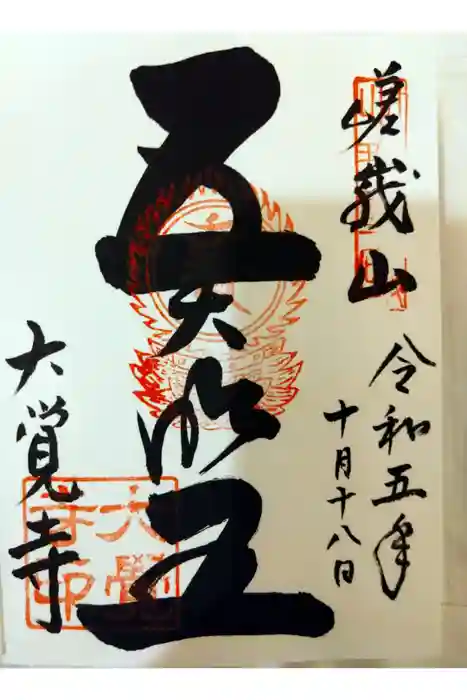 嵯峨山
令和五年
十月十八日
五大明王
大覺寺
大覺寺印